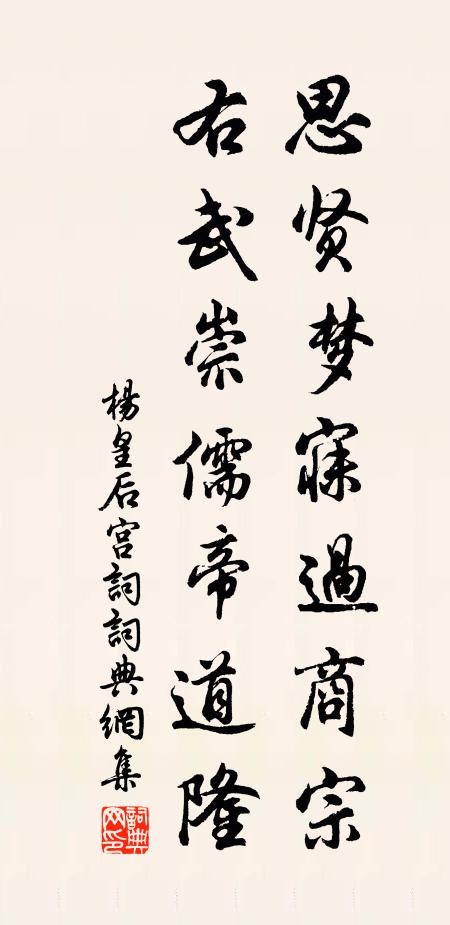 思贤梦寐過商宗
右武崇儒帝道隆
楊皇后宫詞詞典網集
詞典網印